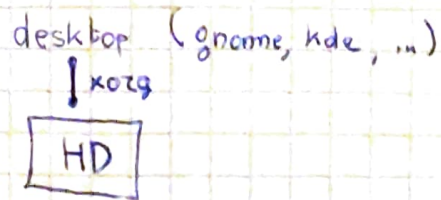 desktop (gnome, kde, ...)
xorg
HD